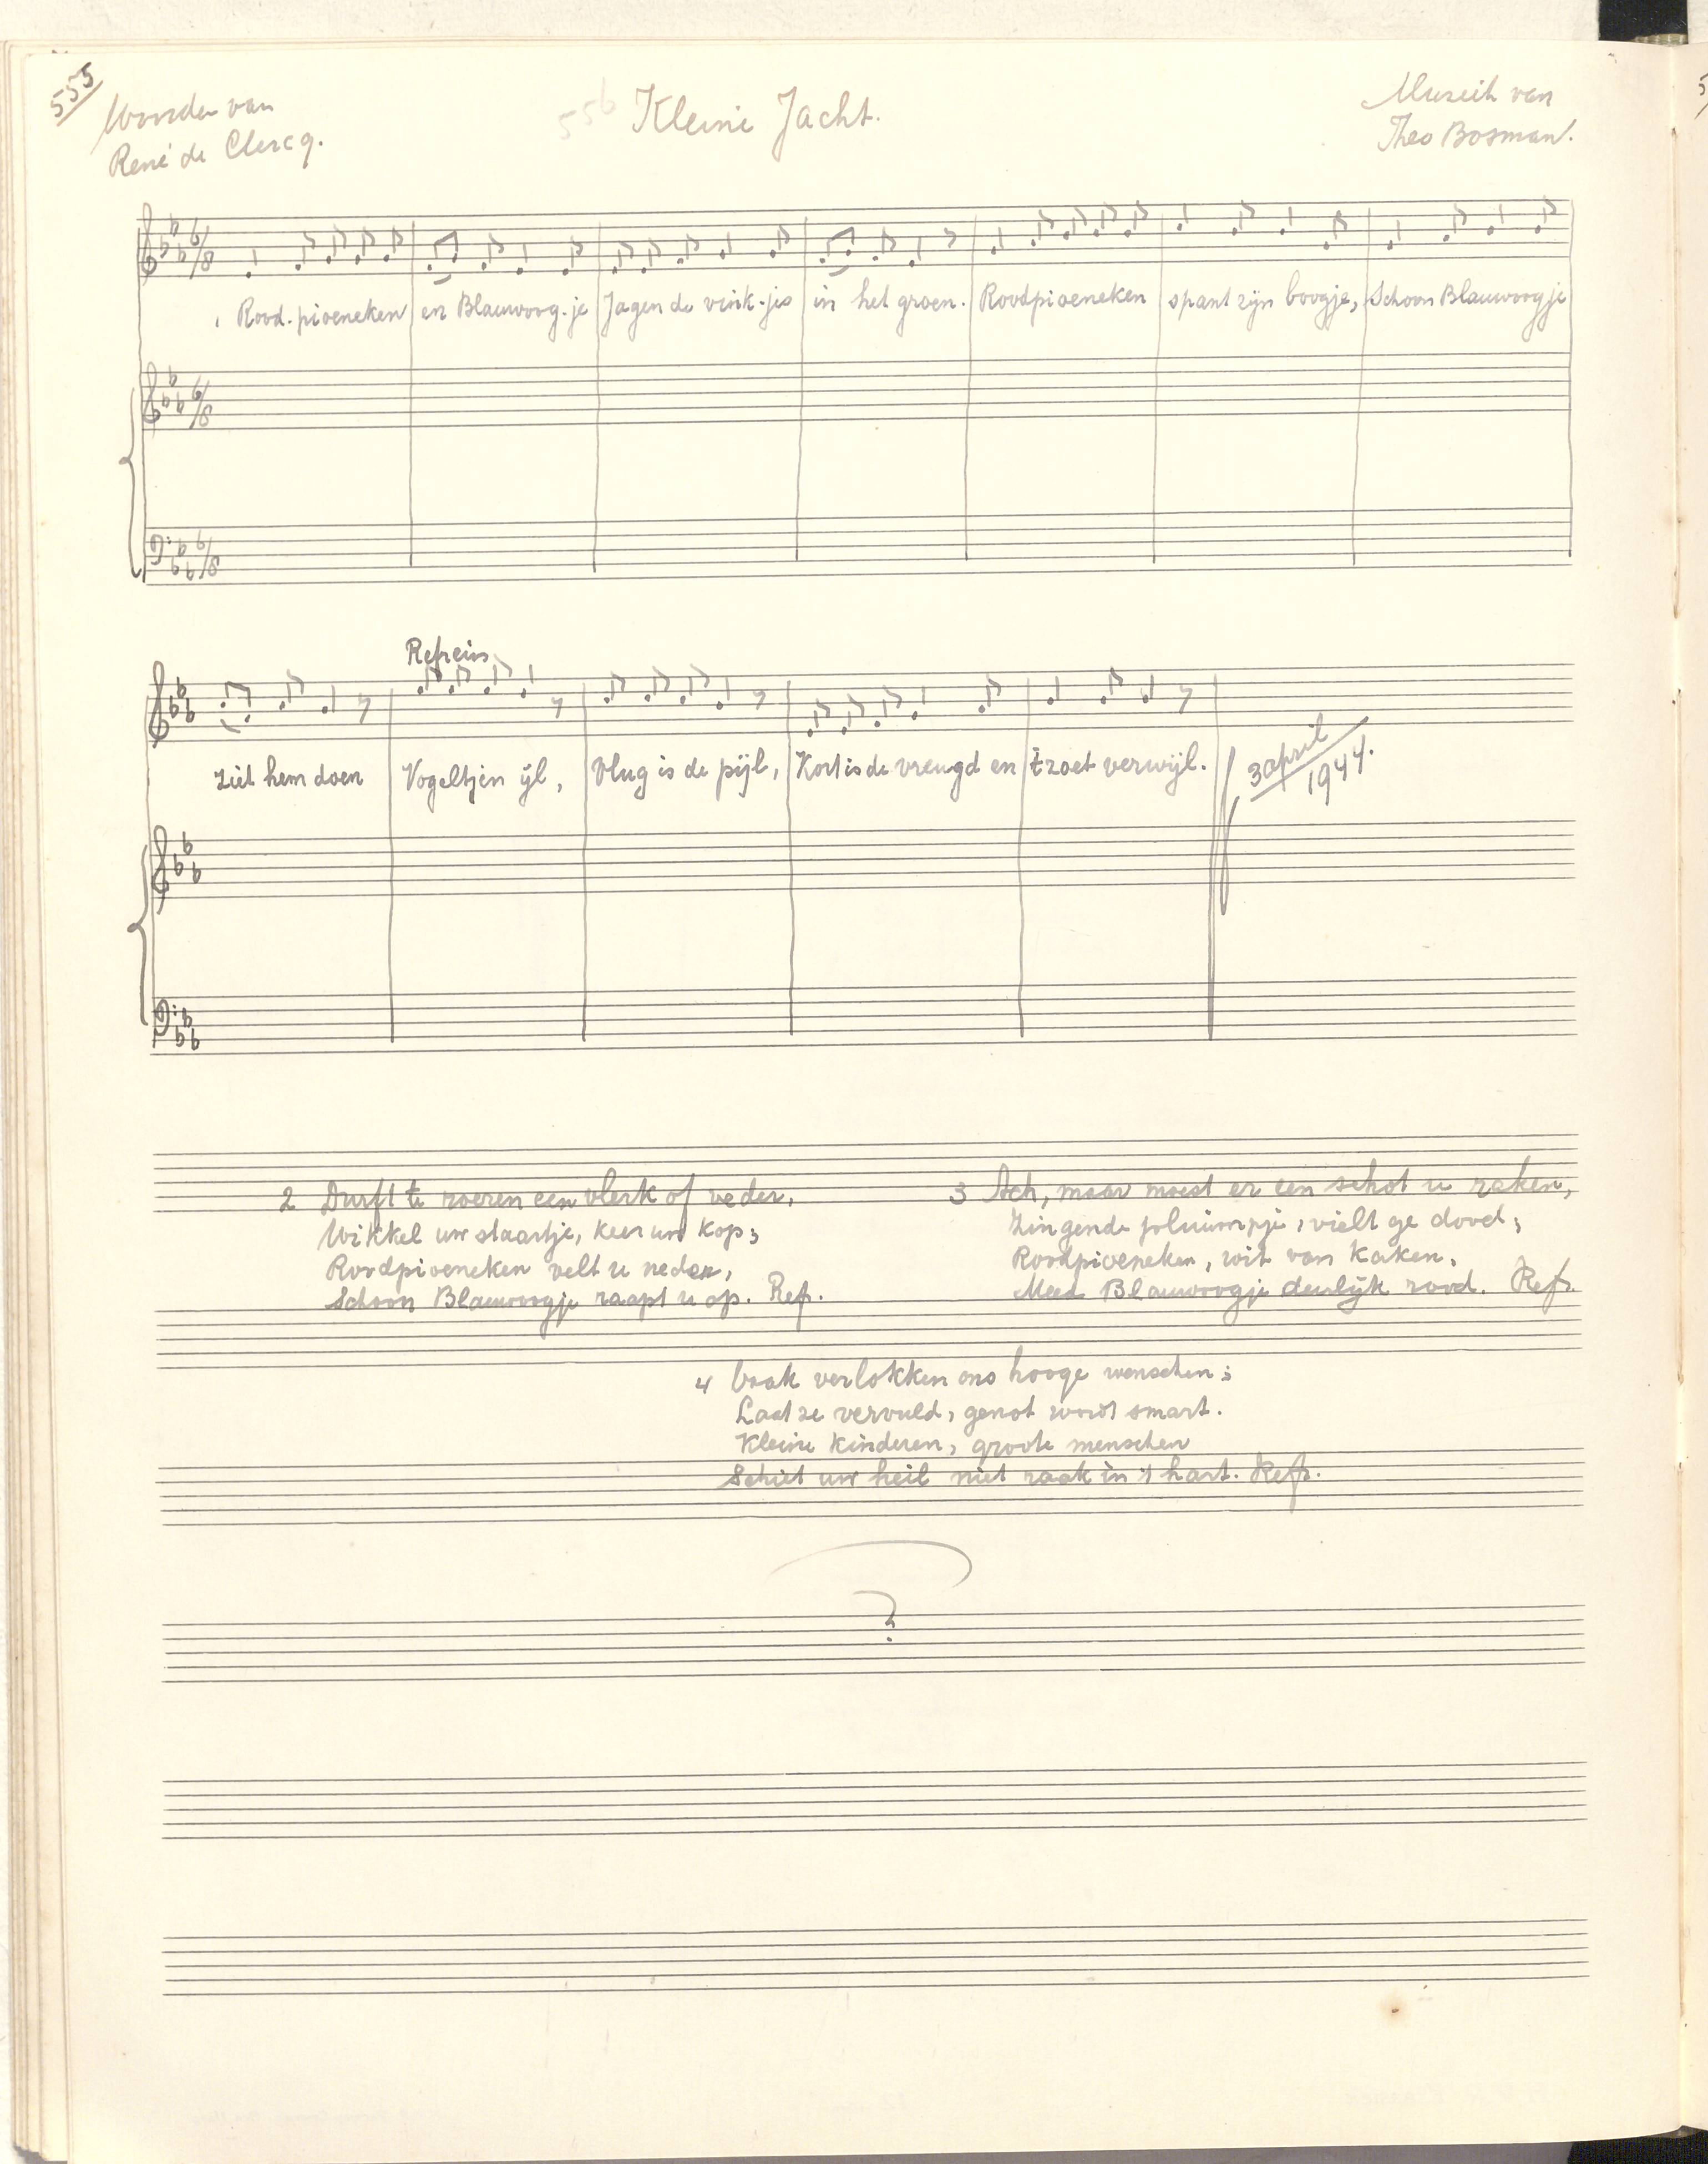 555
Woorden van
René de Clercq.
556 Kleine Jacht.
Muziek van
Theo Bosman.
1 Rood-pioeneken en Blauwoog-je Jagen de vink-jes in het groen. Roodpioeneken spant zijn boogje, Schoon Blauwoogje
Refrein
ziet hem doen Vogeltjen ijl, Vlug is de pijl, Kort is de vreugd en tzoet verwijl.
3 april
1944.
2 Durft te roeren een vlerk of veder,
Wikkel uw staartje, keer uw kop;
Roodpioeneken velt u neder,
Schoon Blauwoogje raapt u op. Ref.
3 Ach, maar moest er een schot u raken,
Zingende pluimpje, vielt ge dood;
Roodpioeneken, wit van kaken,
Meed Blauwoogje deerlijk rood. Ref.
4 Vaak verlokken ons hooge wenschen;
Laat ze vervuld, genot wordt smart.
Kleine kinderen, groote menschen
Schiet uw heil niet raak in 't hart. Ref.
?